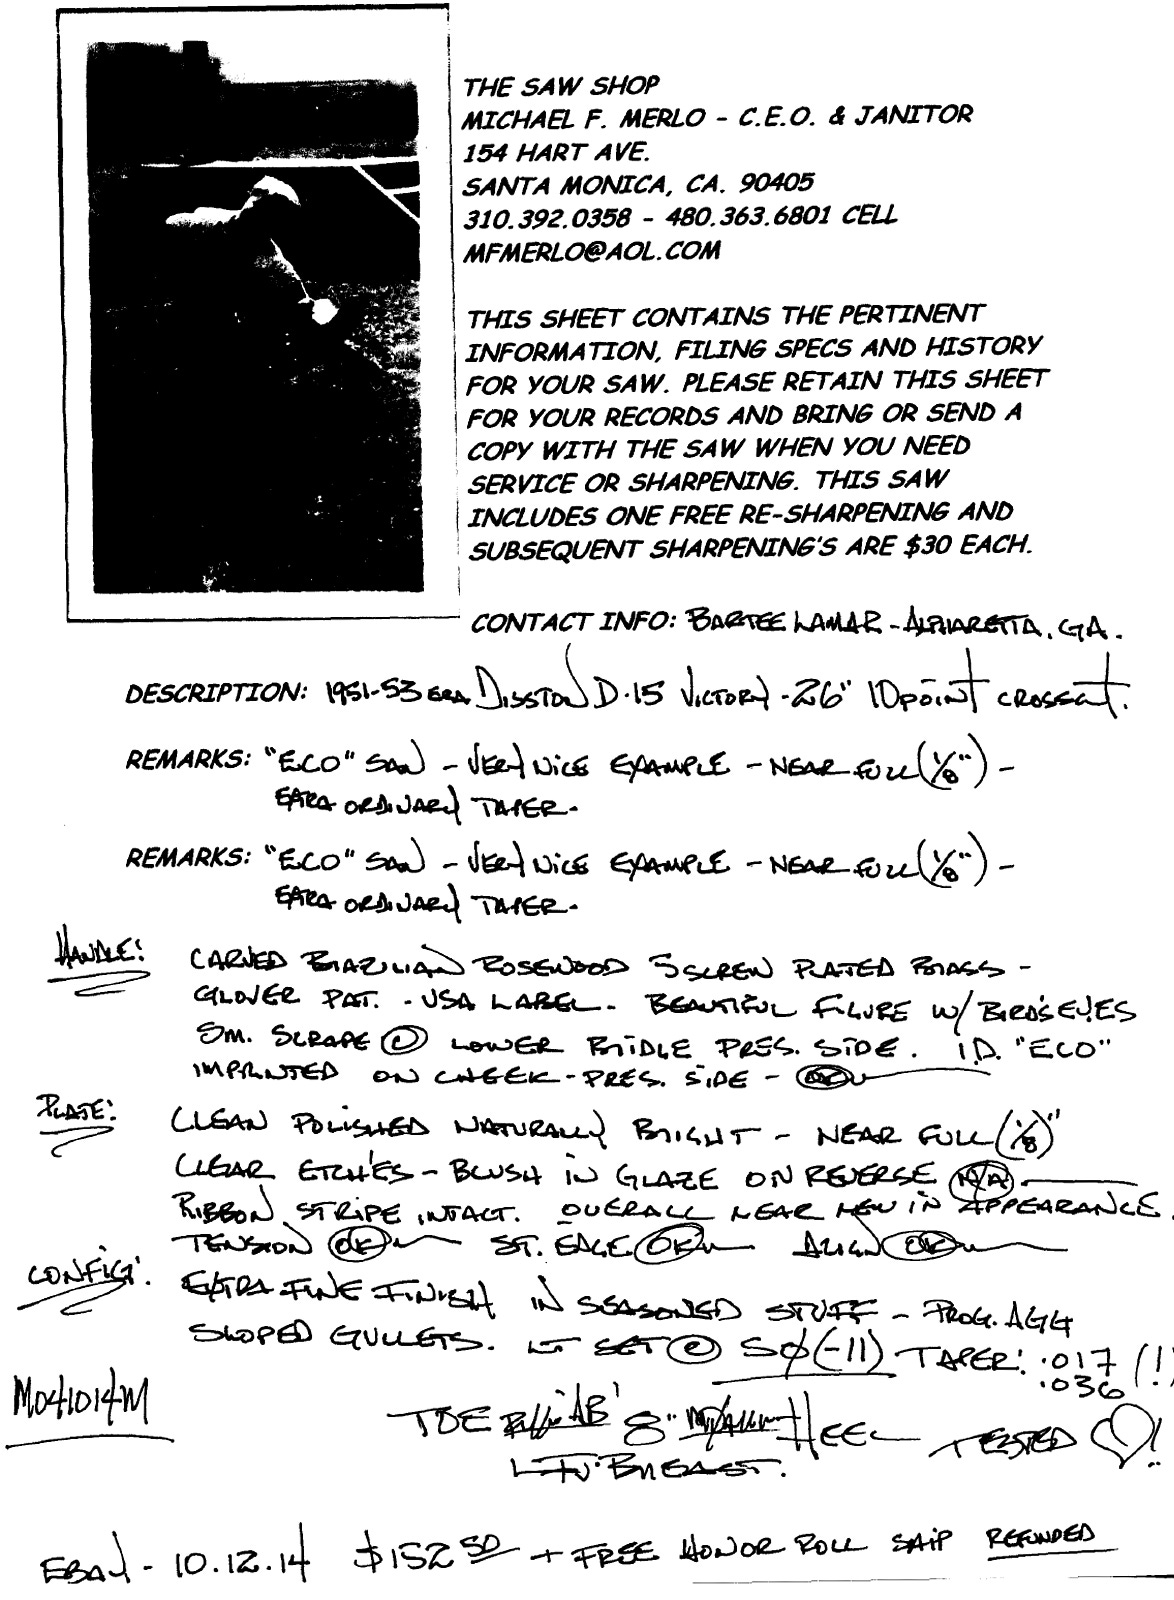 THE SAW SHOP
MICHAEL F. MERLO - C.E.O. & JANITOR
154 HART AVE.
SANTA MONICA, CA. 90405
310.392.0358 - 480.363.6801 CELL
MFMERLO@AOL.COM
THIS SHEET CONTAINS THE PERTINENT
INFORMATION, FILING SPECS AND HISTORY
FOR YOUR SAW. PLEASE RETAIN THIS SHEET
FOR YOUR RECORDS AND BRING OR SEND A
COPY WITH THE SAW WHEN YOU NEED
SERVICE OR SHARPENING. THIS SAW
INCLUDES ONE FREE RE-SHARPENING AND
SUBSEQUENT SHARPENING'S ARE $30 EACH.
CONTACT INFO: BARTEE LAMAR - ALPHARETTA, GA.
DESCRIPTION: 1951-53 ERA DISSTON D-15 VICTORY - 26" 10 POINT CROSSCUT.
REMARKS: "ECO" SAW - VERY NICE EXAMPLE - NEAR FULL (1/8") -
EXTRA ORDINARY TAPER.
REMARKS: "ECO" SAW - VERY NICE EXAMPLE - NEAR FULL (1/8") -
EXTRA ORDINARY TAPER.
HANDLE: CARVED BRAZILIAN ROSEWOOD 5 SCREW PLATED BRASS -
GLOVER PAT. - USA LABEL - BEAUTIFUL FIGURE W/ BIRD'S EYES
SM. SCRAPE @ LOWER BRIDLE PRES. SIDE. I.D. "ECO"
IMPRINTED ON CHEEK - PRES. SIDE - OK
PLATE: CLEAN POLISHED NATURALLY BRIGHT - NEAR FULL (1/8)"
CLEAR ETCH'ES - BLUSH IN GLAZE ON REVERSE N/A
RIBBON STRIPE INTACT. OVERALL NEAR NEW IN APPEARANCE.
TENSION OK ST. EDGE OK ALIGN OK
CONFIG: EXTRA FINE FINISH IN SEASONED STUFF - PROG. AGG
SLOPED GULLETS. LT SET @ 5Ø (-11) TAPER: .017 (!)
.036
M041014M
TOE 8" HEEL TESTED
BREAST.
EBAY - 10.12.14 $152.50 + FREE HONOR ROLL SHIP REFUNDED